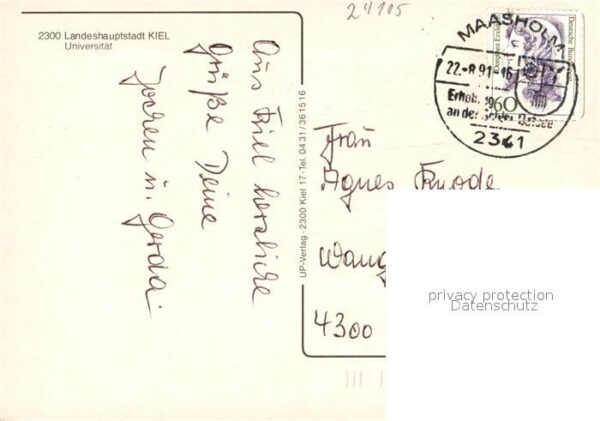 24105
2300 Landeshauptstadt KIEL
Universität
Aus Kiel herzliche
Grüße Deine
Jochen u. Gerda.
UP-Verlag · 2300 Kiel 17 · Tel. 0431/361516
MAASHOLM
22.-8.91-16
an der Ostsee
2341
60
Deutsche Bundespost
Frau
Agnes Knode
Wang
4300
privacy protection
Datenschutz